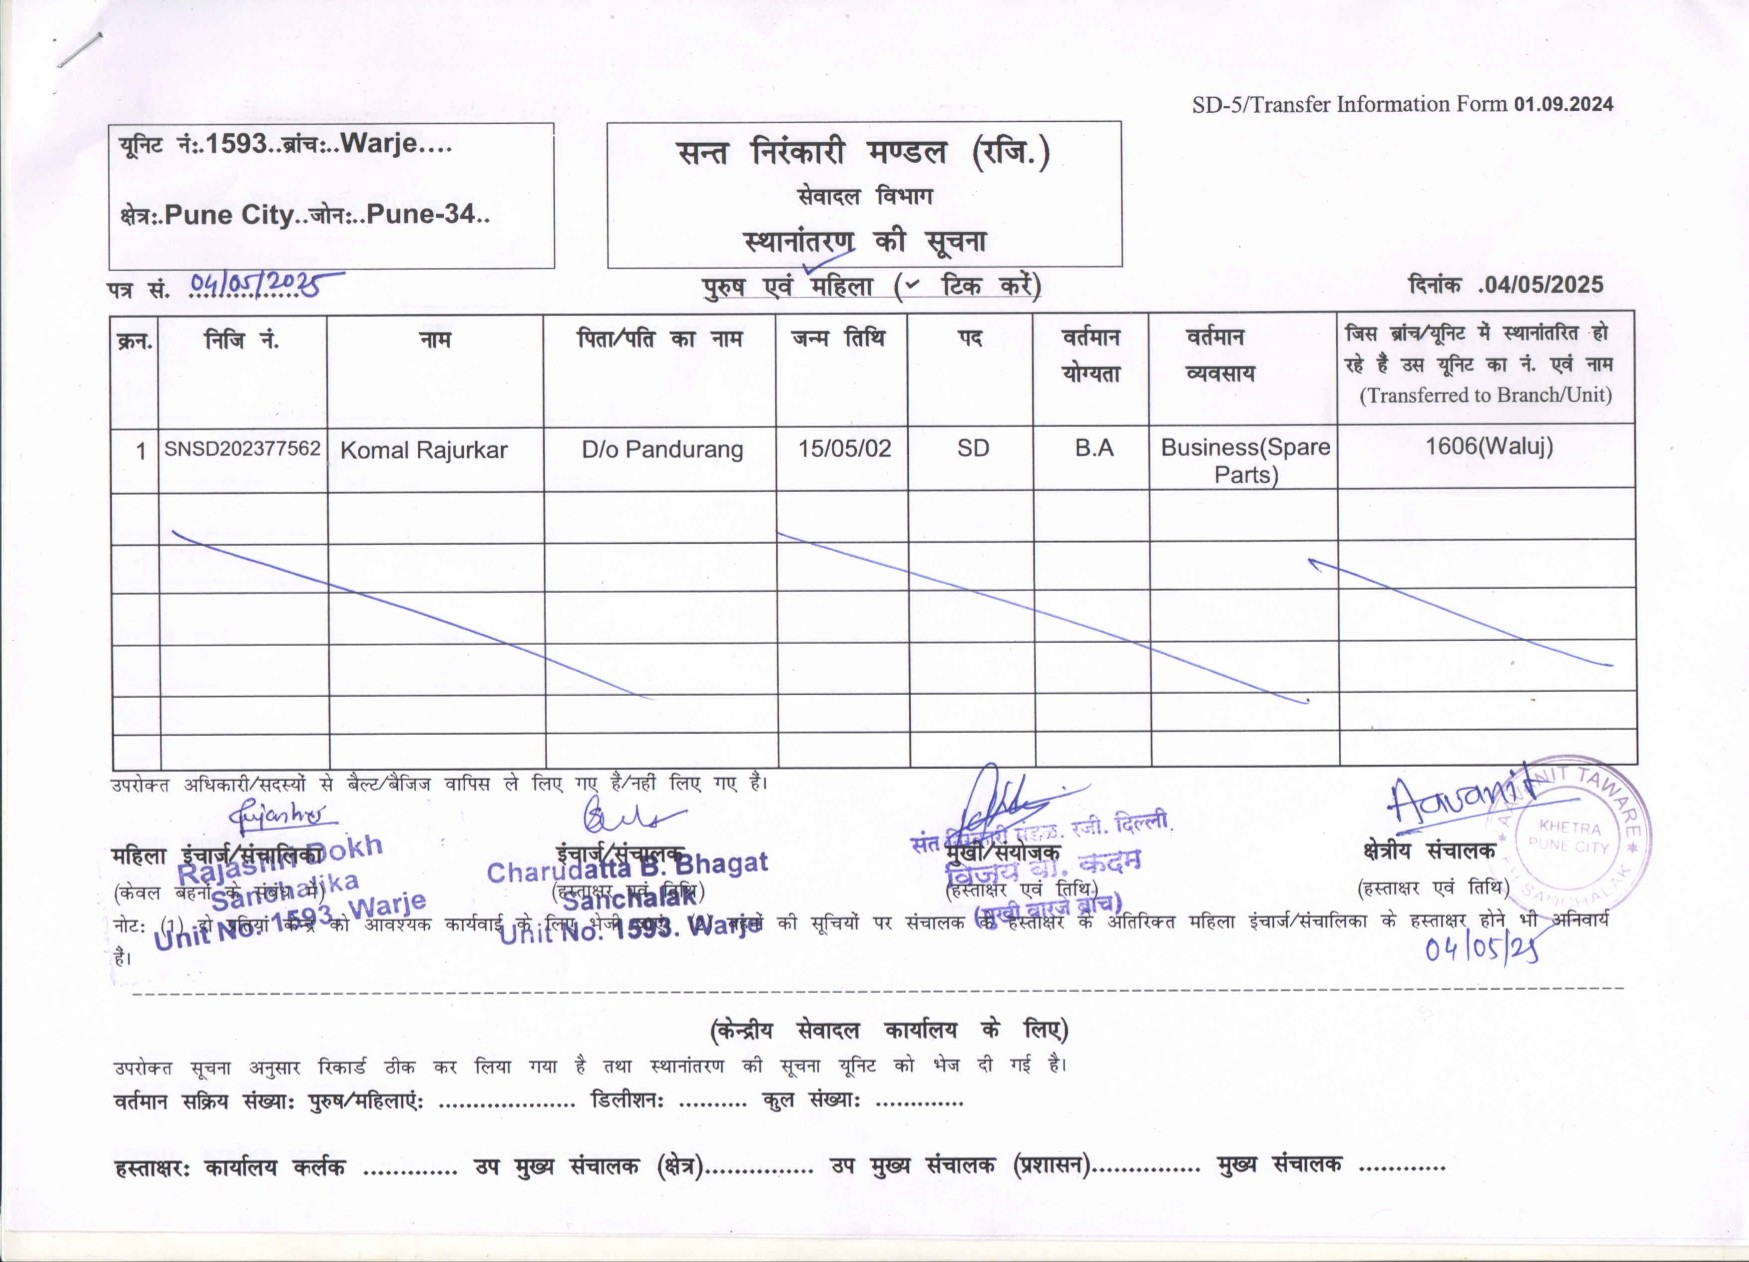 SD-5/Transfer Information Form 01.09.2024
यूनिट नं:.1593..ब्रांच:..Warje....
क्षेत्र:.Pune City..जोन:..Pune-34..
सन्त निरंकारी मण्डल (रजि.)
सेवादल विभाग
स्थानांतरण की सूचना
पत्र सं. 04/05/2025
पुरुष एवं महिला (✓ टिक करें)
दिनांक .04/05/2025
क्रन. निजि नं. नाम पिता/पति का नाम जन्म तिथि पद वर्तमान योग्यता वर्तमान व्यवसाय जिस ब्रांच/यूनिट में स्थानांतरित हो
रहे है उस यूनिट का नं. एवं नाम
(Transferred to Branch/Unit)
1 SNSD202377562 Komal Rajurkar D/o Pandurang 15/05/02 SD B.A Business(Spare Parts) 1606(Waluj)
उपरोक्त अधिकारी/सदस्यों से बैल्ट/बैजिज वापिस ले लिए गए है/नहीं लिए गए है।
महिला इंचार्ज/संचालिका
(केवल बहनों के संबंध में)
Rajashri Dokh
Sanchalika
Unit No. 1593, Warje
इंचार्ज/संचालक
(हस्ताक्षर एवं तिथि)
Charudatta B. Bhagat
Sanchalak
Unit No. 1593. Warje
मुखी/संयोजक
(हस्ताक्षर एवं तिथि)
संत निरंकारी मंडळ. रजी. दिल्ली.
विजय बी. कदम
(मुखी वारजे ब्रांच)
Aavanit
क्षेत्रीय संचालक
(हस्ताक्षर एवं तिथि)
TAWARE
KHETRA
PUNE CITY
SANCHALAK
नोट: (1) दो प्रतियां केन्द्र को आवश्यक कार्यवाई के लिए भेजी जाएं। (2) बहनों की सूचियों पर संचालक के हस्ताक्षर के अतिरिक्त महिला इंचार्ज/संचालिका के हस्ताक्षर होने भी अनिवार्य
है।
04/05/25
(केन्द्रीय सेवादल कार्यालय के लिए)
उपरोक्त सूचना अनुसार रिकार्ड ठीक कर लिया गया है तथा स्थानांतरण की सूचना यूनिट को भेज दी गई है।
वर्तमान सक्रिय संख्या: पुरुष/महिलाएं: .................... डिलीशन: .......... कुल संख्या: .............
हस्ताक्षर: कार्यालय कर्लक ............. उप मुख्य संचालक (क्षेत्र)............... उप मुख्य संचालक (प्रशासन)............... मुख्य संचालक ............